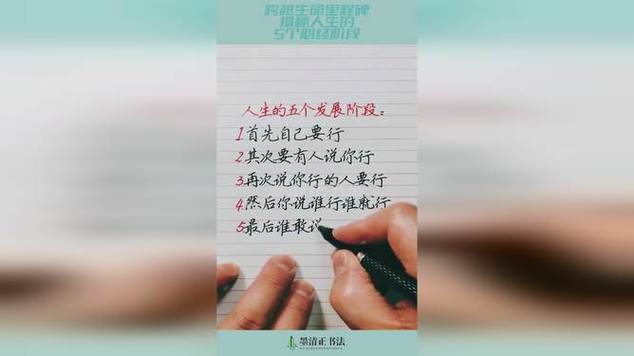 跨越生命里程碑
揭秘人生的
5个必经阶段
人生的五个发展阶段：
1首先自己要行
2其次要有人说你行
3再次说你行的人要行
4然后你说谁行谁就行
5最后谁敢说
墨清正书法